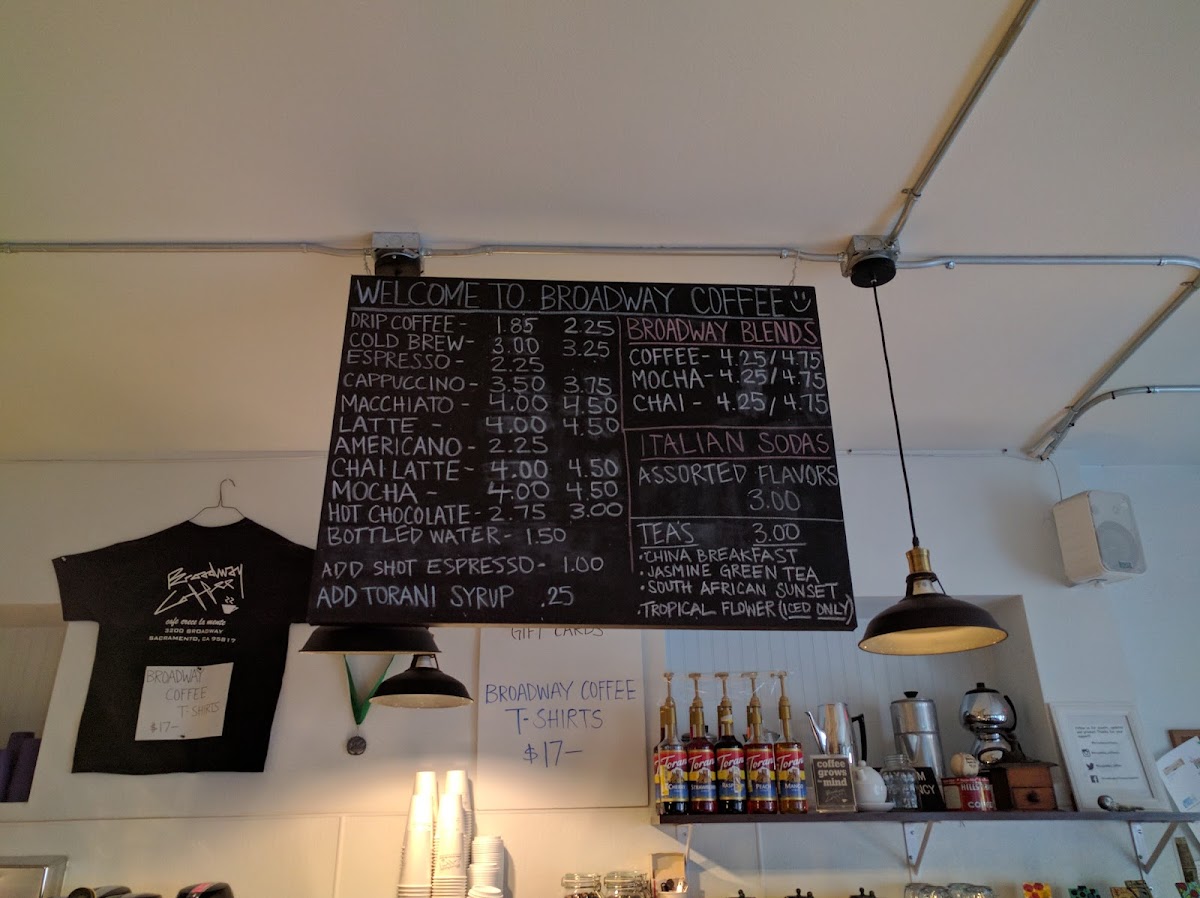 WELCOME TO BROADWAY COFFEE
DRIP COFFEE- 1.85 2.25
COLD BREW- 3.00 3.25
ESPRESSO- 2.25
CAPPUCCINO- 3.50 3.75
MACCHIATO- 4.00 4.50
LATTE - 4.00 4.50
AMERICANO- 2.25
CHAI LATTE- 4.00 4.50
MOCHA - 4.00 4.50
HOT CHOCOLATE- 2.75 3.00
BOTTLED WATER- 1.50
ADD SHOT ESPRESSO- 1.00
ADD TORANI SYRUP .25
BROADWAY BLENDS
COFFEE- 4.25/4.75
MOCHA- 4.25/4.75
CHAI - 4.25/4.75
ITALIAN SODAS
ASSORTED FLAVORS
3.00
TEA'S 3.00
•CHINA BREAKFAST
•JASMINE GREEN TEA
•SOUTH AFRICAN SUNSET
•TROPICAL FLOWER (ICED ONLY)
Broadway
Coffee
cafe crece la mente
3200 BROADWAY
SACRAMENTO, CA 95817
BROADWAY
COFFEE
T-SHIRTS
$17-
GIFT CARDS
BROADWAY COFFEE
T-SHIRTS
$17-
Torani
Torani
Torani
Torani
PEACH
Torani
MANGO
coffee
grows
mind
HILLS